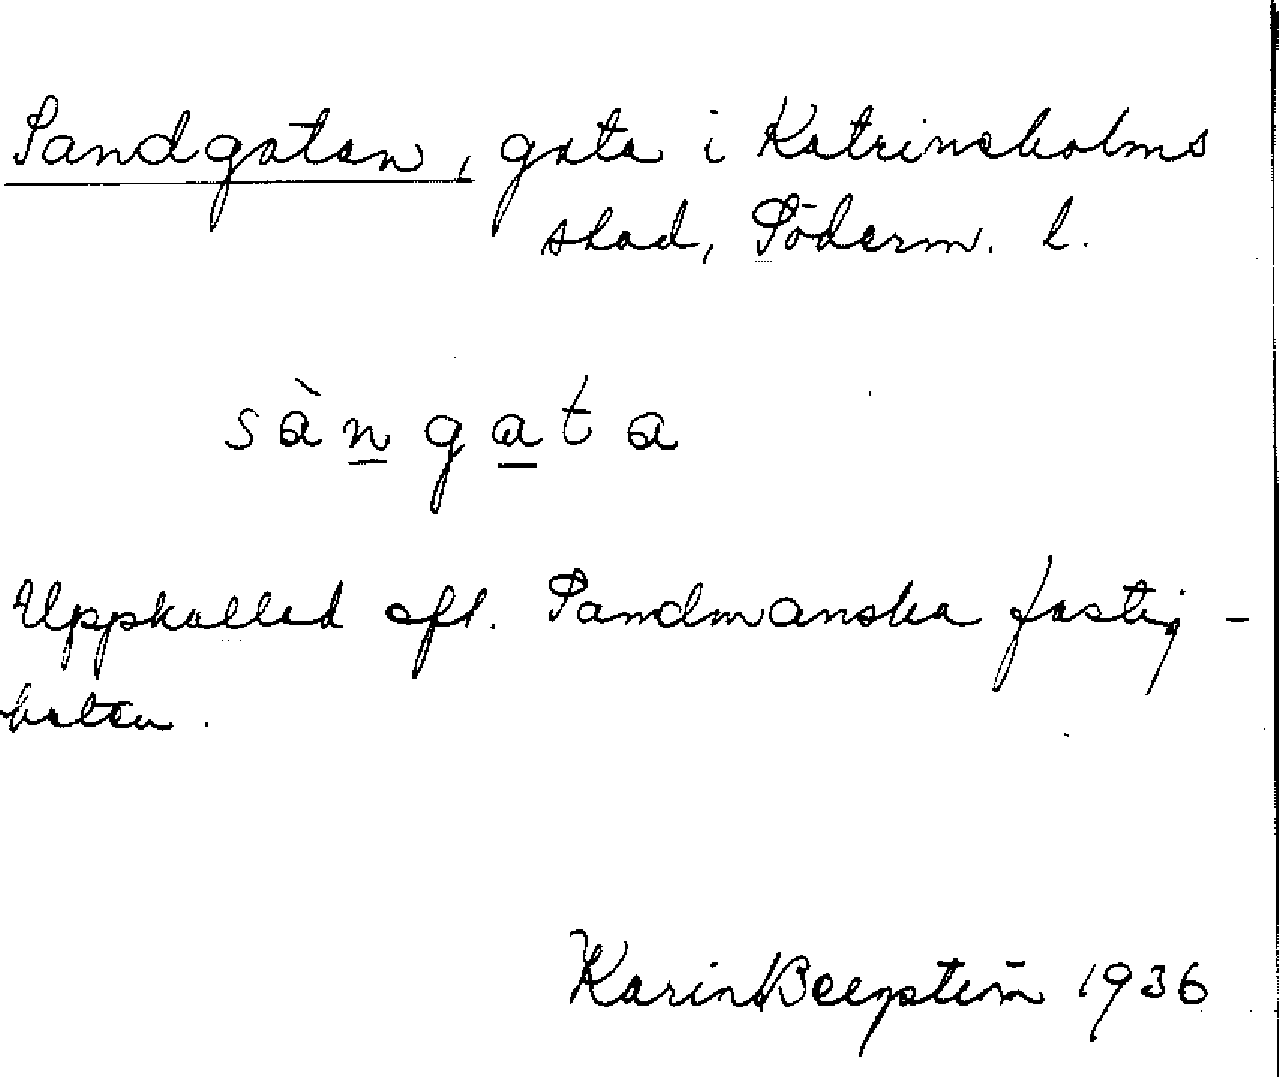 Sandgatan, gata i Katrineholms
stad, Söderm. l.
sàngata
Uppkallad eft. Sandmanska fastig-
heten.
Karin 1936